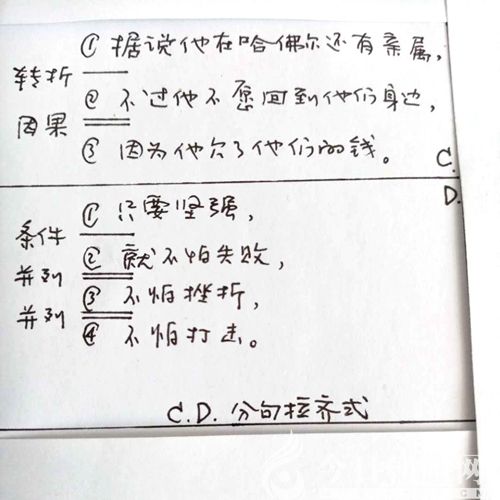 ① 据说他在哈佛尔还有亲属,
转折
② 不过他不愿回到他们身边,
因果
③ 因为他欠了他们的钱。
C.
D.
① 只要坚强,
条件
② 就不怕失败,
并列
③ 不怕挫折,
并列
④ 不怕打击。
C.D. 分句拉齐式